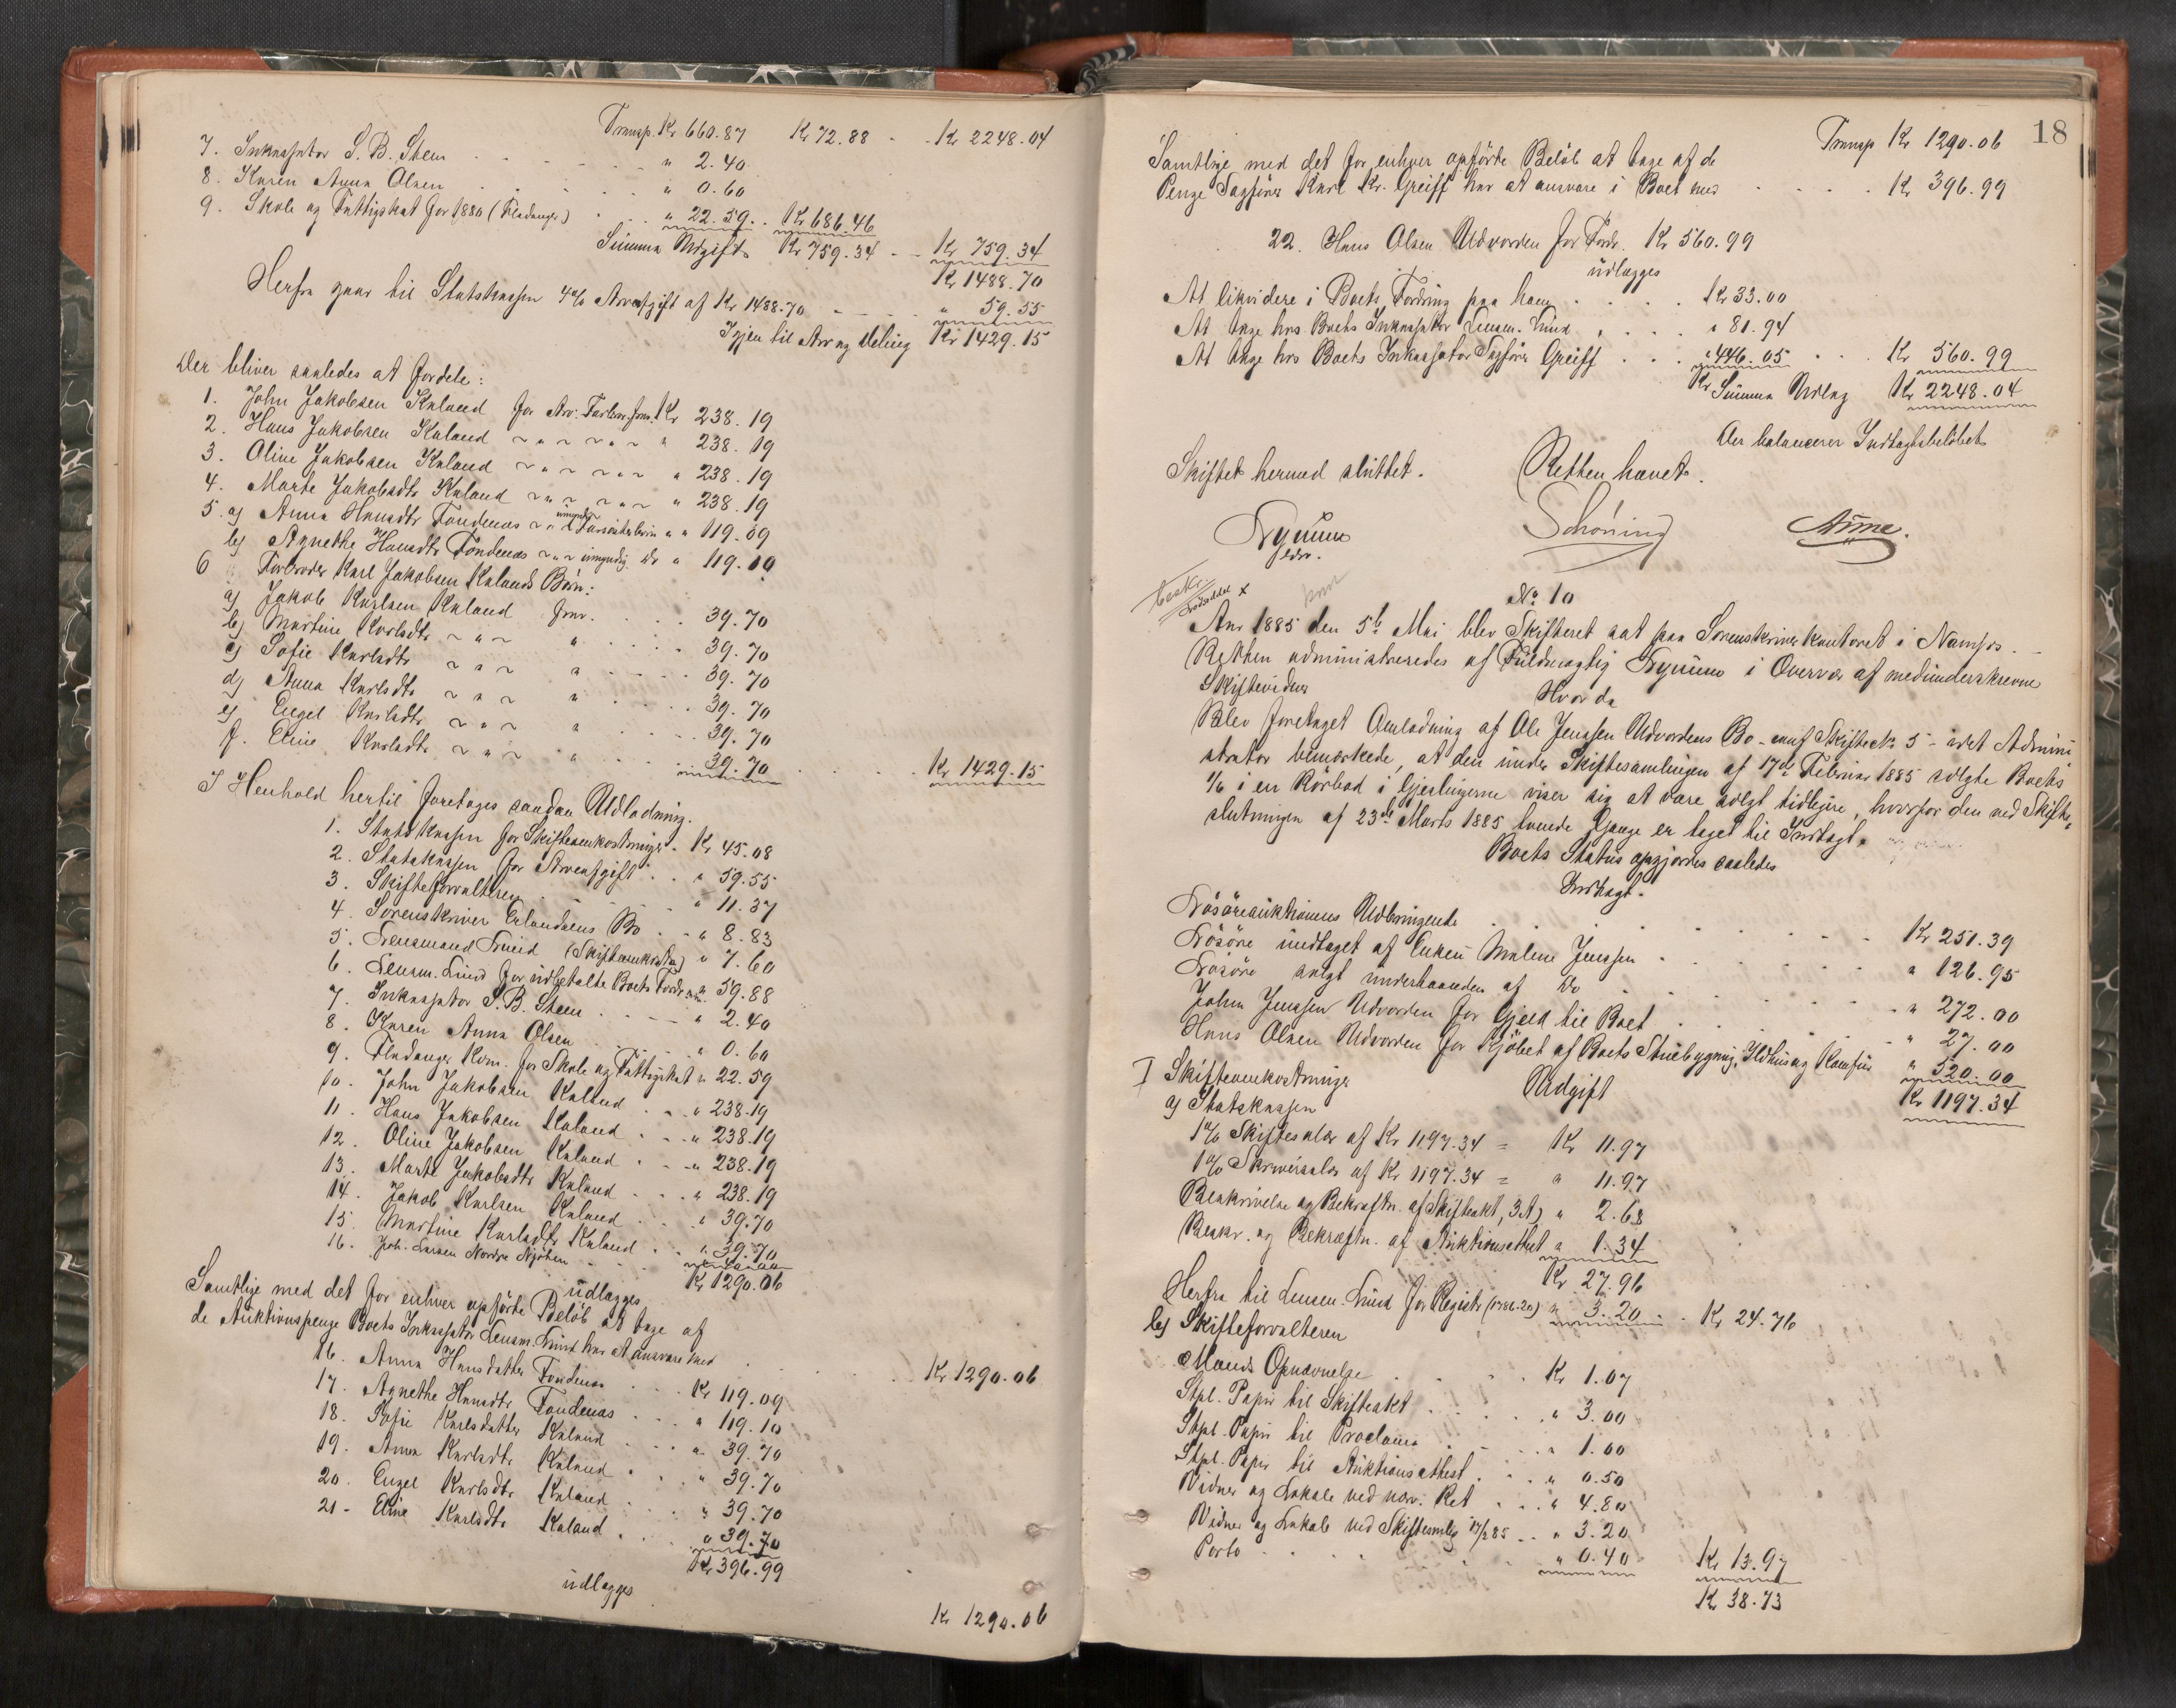 Transp. Kr 660.87 Kr 72.88 - Kr 2248.04
7. Inkassator S. B. Steen " 2.40
8. Karen Anna Olsen " 0.60
9. Skole og Fattigskat for 1880 (Fladanger) " 22.59 Kr 686.46
Summa Udgift Kr 759.34 - Kr 759.34
Kr 1488.70
Herfra gaar til Statskassen 4% Arveafgift af Kr 1488.70 " 59.55
Igjen til Arv og Deling Kr 1429.15
Der bliver saaledes at fordele:
1. John Jakobsen Kaland for Arv. Farbror. fmr. Kr 238.19
2. Hans Jakobsen Kaland " " " 238.19
3. Oline Jakobsen Kaland " " " 238.19
4. Marte Jakobsdtr Kaland " " " 238.19
5. a) Anna Hansdtr Fondenas " umyndig " " 119.09
b) Agnethe Hansdtr Fondenas " umyndig Do " 119.10
6 Farbroder Karl Jakobsen Kalands Børn:
a) Jakob Karlsen Kaland fmr. 39.70
b) Martine Karlsdtr " " 39.70
c) Sofie Karlsdtr " " 39.70
d) Anna Karlsdtr " " 39.70
e) Engel Karlsdtr " " 39.70
f. Eline Karlsdtr " " 39.70 Kr 1429.15
I Henhold hertil foretoges saadan Udlodning.
1. Statskassen for Skifteomkostninger Kr 45.08
2. Statskassen for Arveafgift " 59.55
3. Skifteforvalteren " 11.37
4. Sorenskriver Erlandsens Bo " 8.83
5. Lensmand Lund (Skifteomkostn) " 7.60
6. Lensm. Lund for udbetalte Boets Fordr. " 59.88
7. Inkassator S. B. Steen " 2.40
8. Karen Anna Olsen " 0.60
9. Fladanger Kom. for Skole og Fattigskat " 22.59
10. John Jakobsen Kaland " 238.19
11. Hans Jakobsen Kaland " 238.19
12. Oline Jakobsen Kaland " 238.19
13. Marte Jakobsdtr Kaland " 238.19
14. Jakob Karlsen Kaland " 39.70
15. Martine Karlsdtr Kaland " 39.70
16. Joh. Larsen Nordre
Kr 1290.06
udlægges
Samtlige med det for enhver opførte Beløb at tage af
de Auktionspenge Boets Inkassator Lensm. Lund har at ansvare med Kr 1290.06
16. Anna Hansdatter Fondenas Kr 119.09
17. Agnethe Hansdtr Fondenas " 119.10
18. Sofie Karlsdatter Kaland " 39.70
19. Anna Karlsdtr Kaland " 39.70
20. Engel Karlsdtr Kaland " 39.70
21 - Eline Karlsdtr Kaland " 39.70
Kr 396.99
udlægges
Kr 1290.06
18
Transp Kr 1290.06
Samtlige med det for enhver opførte Beløb at tage af de
Penge Sagfører Karl Kr. Greiff har at ansvare i Boet med Kr 396.99
22. Hans Olsen Udvorden for Fordr. Kr 560.99
udlægges
At likvidere i Boets Fordring paa ham Kr 33.00
At tage hos Boets Inkassator Lensm. Lund " 81.94
At tage hos Boets Inkassator Sagfører Greiff " 446.05 Kr 560.99
Kr Summa Udlæg Kr 2248.04
der balancerer Indtagtsbeløbet
Skiftet hermed sluttet. Retten hævet.
Nynum Schøning Aune.
beskr.
No 10
Aar 1885 den 5te Mai blev Skifteret sat paa Sorenskriverkontoret i Namsos. -
Retten administreredes af Fuldmægtig Nynum i Overvær af medunderskrevne
Skiftevidner Hvorda
Blev foretaget Omlodning af Ole Jenssen Udvordens Bo - confr Skifteakt 5 - idet Admini-
strator bemærkede, at den under Skiftesamlingen af 17de Februar 1885 solgte Boets
1/6 i en Rorbod i Gjæslingerne viser sig at være solgt tidligere, hvorfor den ved Skifte-
slutningen af 23de Marts 1885 tvende Gange er taget til Indtægt.
Boets Status opgjordes saaledes
Indtægt.
Løsøreauktionens Udbringende Kr 251.39
Løsøre undtaget af Enken Malene Jenssen " 126.95
Løsøre solgt underhaanden af Do " 272.00
Johan Jenssen Udvorden for Gjeld til Boet " 27.00
Hans Olsen Udvorden for Kjøbet af Boets Stuebygning, Ildhus og Komfur " 520.00
Kr 1197.34
I Skifteomkostninger Udgift
a) Statskassen
1% Skiftesalær af Kr 1197.34 = Kr 11.97
1% Skriversalær af Kr 1197.34 = " 11.97
Beskrivelse og Bekræftn. af Skifteakt, 3 A) " 2.68
Beskr. og Bekræftn. af Auktionsattest " 1.34
Kr 27.96
Herfra til Lensm. Lund for Registr. " 3.20 Kr 24.76
b) Skifteforvalteren
Mands Opnævnelse Kr 1.07
Stpl. Papir til Skifteakt " 3.00
Stpl. Papir til Proclama " 1.00
Stpl. Papir til Auktionsattest " 0.50
Vidner og Lokale ved nærv. Ret " 4.80
Vidner og Lokale ved Skiftesmlg 17/2 85 " 3.20
Porto " 0.40 Kr 13.97
Kr 38.73